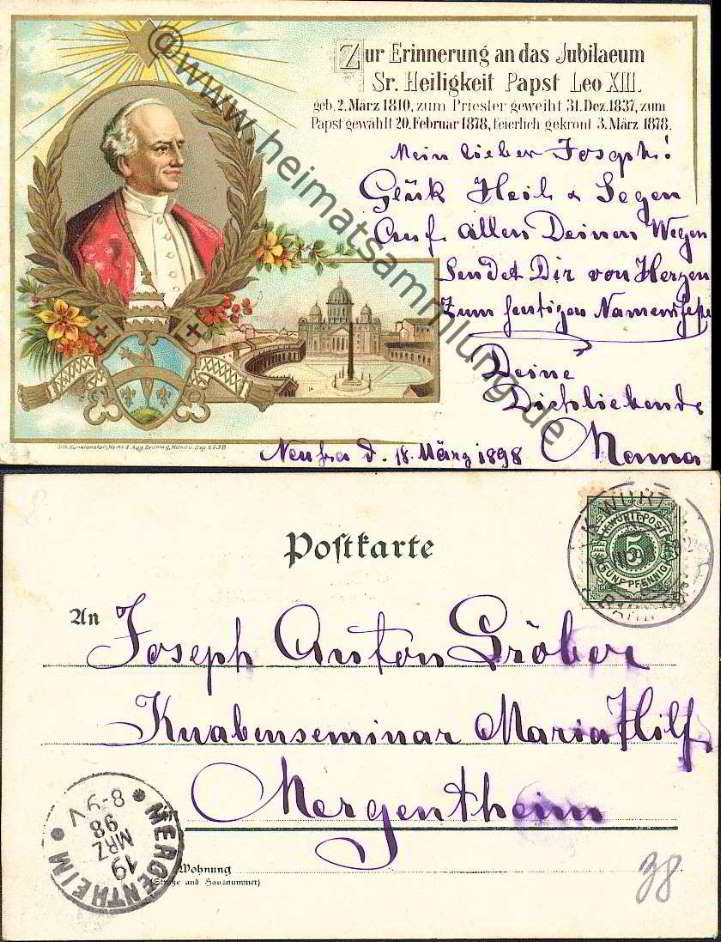 Zur Erinnerung an das Jubilaeum
Sr. Heiligkeit Papst Leo XIII.
geb. 2. März 1810, zum Priester geweiht 31. Dez. 1837, zum
Papst gewählt 20. Februar 1878, feierlich gekrönt 3. März 1878.
Mein lieber Joseph!
Glük Heil & Segen
Auf allen Deinen Wegen
Sendet Dir von Herzen
Zum heutigen Namensfeste
Deine
Dichliebende
Mamma
Neufra d. 18. März 1898
©www.heimatsammlung.de
Postkarte
K. WÜRTT. POST
5
FÜNF PFENNIG
An Joseph Anton Gröber
Knabenseminar Maria Hilf
Mergentheim
MERGENTHEIM
19
MRZ
98
8-9 V
Wohnung
(Straße und Hausnummer)
98